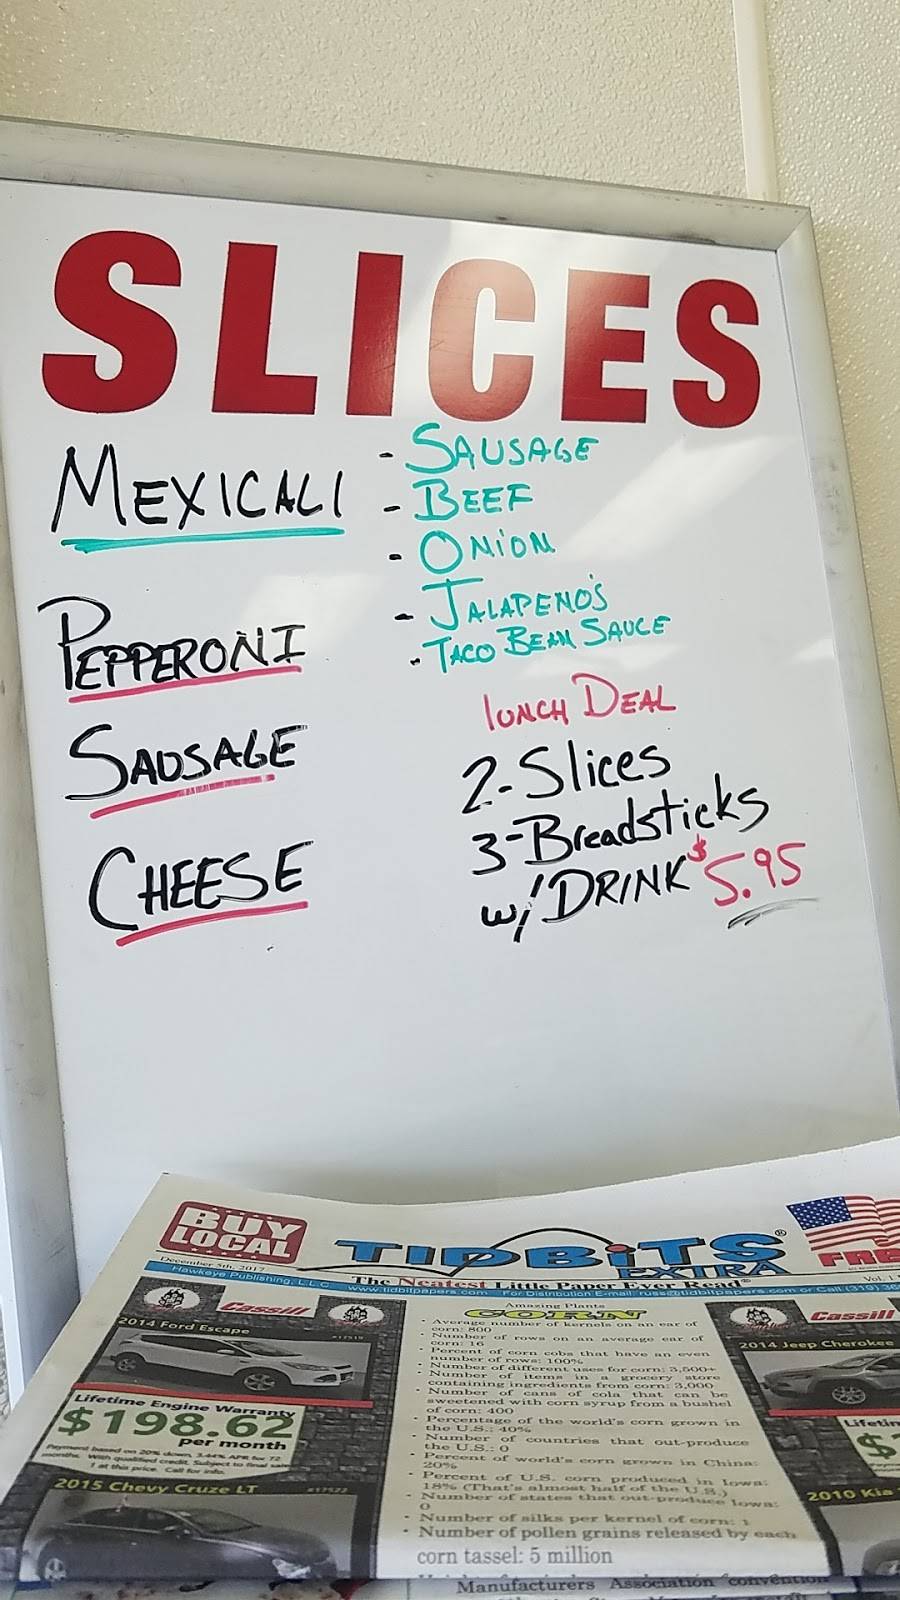 SLICES
MEXICALI
- SAUSAGE
- BEEF
- ONION
- JALAPENO'S
- TACO BEAN SAUCE
PEPPERONI
SAUSAGE
CHEESE
LUNCH DEAL
2-Slices
3-Breadsticks
w/DRINK $5.95
BUY
LOCAL
December 5th, 2017
TIDBITS®
EXTRA
The Neatest Little Paper Ever Read®
Hawkeye Publishing, L.L.C.
www.tidbitpapers.com For Distribution E-mail: russ@tidbitpapers.com or Call (319)
Vol.
Cassill
2014 Ford Escape
Lifetime Engine Warranty
$198.62
per month
Payment based on 20% down, 3.44% APR for 72
months. With qualified credit. Subject to final
Call for info.
2015 Chevy Cruze LT
#17522
Amazing Plants
CORN
• Average number of kernels on an ear of
corn: 800
• Number of rows on an average ear of
corn: 16
• Percent of corn cobs that have an even
number of rows: 100%
• Number of different uses for corn: 3,500+
• Number of items in a grocery store
containing ingredients from corn: 3,000
• Number of cans of cola that can be
sweetened with corn syrup from a bushel
of corn: 400
• Percentage of the world's corn grown in
the U.S.: 40%
• Number of countries that out-produce
the U.S.: 0
• Percent of world's corn grown in China:
20%
• Percent of U.S. corn produced in Iowa:
18% (That's almost half of the U.S.)
• Number of states that out-produce Iowa:
0
• Number of silks per kernel of corn: 1
• Number of pollen grains released by each
corn tassel: 5 million
Manufacturers Association convention
Cassill
2014 Jeep Cherokee
$
2010 Kia